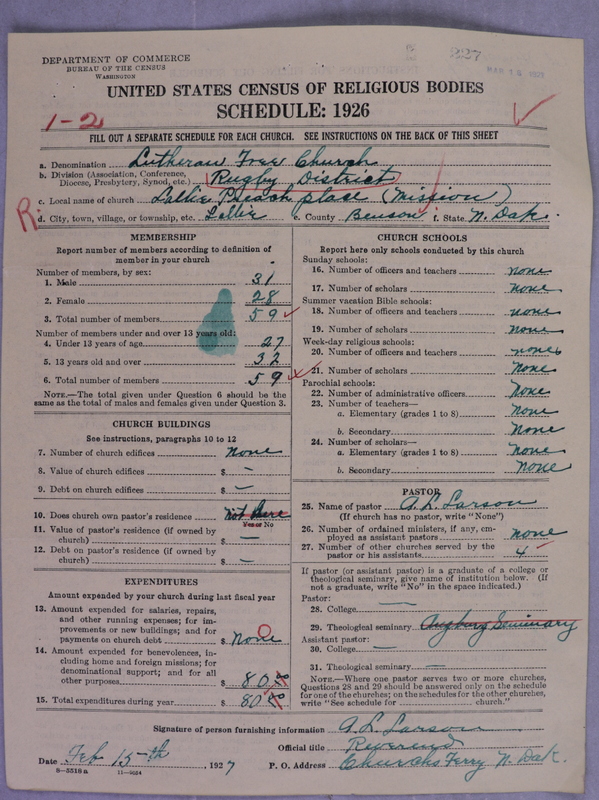 227
DEPARTMENT OF COMMERCE
BUREAU OF THE CENSUS
WASHINGTON
UNITED STATES CENSUS OF RELIGIOUS BODIES
SCHEDULE: 1926
1-2
FILL OUT A SEPARATE SCHEDULE FOR EACH CHURCH. SEE INSTRUCTIONS ON THE BACK OF THIS SHEET
a. Denomination Lutheran Free Church
b. Division (Association, Conference, Diocese, Presbytery, Synod, etc.) Rugby District
c. Local name of church Lallie Preach place (Mission)
R
d. City, town, village, or township, etc. Lallie e. County Benson f. State N. Dak.
MEMBERSHIP
Report number of members according to definition of
member in your church
Number of members, by sex:
1. Male 31
2. Female 28
3. Total number of members 59
Number of members under and over 13 years old:
4. Under 13 years of age 27
5. 13 years old and over 32
6. Total number of members 59
NOTE.—The total given under Question 6 should be the
same as the total of males and females given under Question 3.
CHURCH BUILDINGS
See instructions, paragraphs 10 to 12
7. Number of church edifices none
8. Value of church edifices $ —
9. Debt on church edifices $ —
10. Does church own pastor's residence not here
Yes or No
11. Value of pastor's residence (if owned by
church) $ —
12. Debt on pastor's residence (if owned by
church) $ —
EXPENDITURES
Amount expended by your church during last fiscal year
13. Amount expended for salaries, repairs,
and other running expenses; for im-
provements or new buildings; and for
payments on church debt none
14. Amount expended for benevolences, in-
cluding home and foreign missions; for
denominational support; and for all
other purposes $ 80 00
15. Total expenditures during year $ 80 00
CHURCH SCHOOLS
Report here only schools conducted by this church
Sunday schools:
16. Number of officers and teachers none
17. Number of scholars none
Summer vacation Bible schools:
18. Number of officers and teachers none
19. Number of scholars none
Week-day religious schools:
20. Number of officers and teachers none
21. Number of scholars none
Parochial schools:
22. Number of administrative officers none
23. Number of teachers—
a. Elementary (grades 1 to 8) none
b. Secondary none
24. Number of scholars—
a. Elementary (grades 1 to 8) none
b. Secondary none
PASTOR
25. Name of pastor A. L. Larson
(If church has no pastor, write "None")
26. Number of ordained ministers, if any, em-
ployed as assistant pastors none
27. Number of other churches served by the
pastor or his assistants 4
If pastor (or assistant pastor) is a graduate of a college or
theological seminary, give name of institution below. (If
not a graduate, write "No" in the space indicated.)
Pastor:
28. College —
29. Theological seminary Augburg Seminary
Assistant pastor:
30. College —
31. Theological seminary —
NOTE.—Where one pastor serves two or more churches,
Questions 28 and 29 should be answered only on the schedule
for one of the churches; on the schedules for the other churches,
write "See schedule for church."
Signature of person furnishing information A. L. Larson
Official title Reverend
Date Feb 15-th, 1927 P. O. Address Churchs Ferry N. Dak.
8-5518a 11-9024